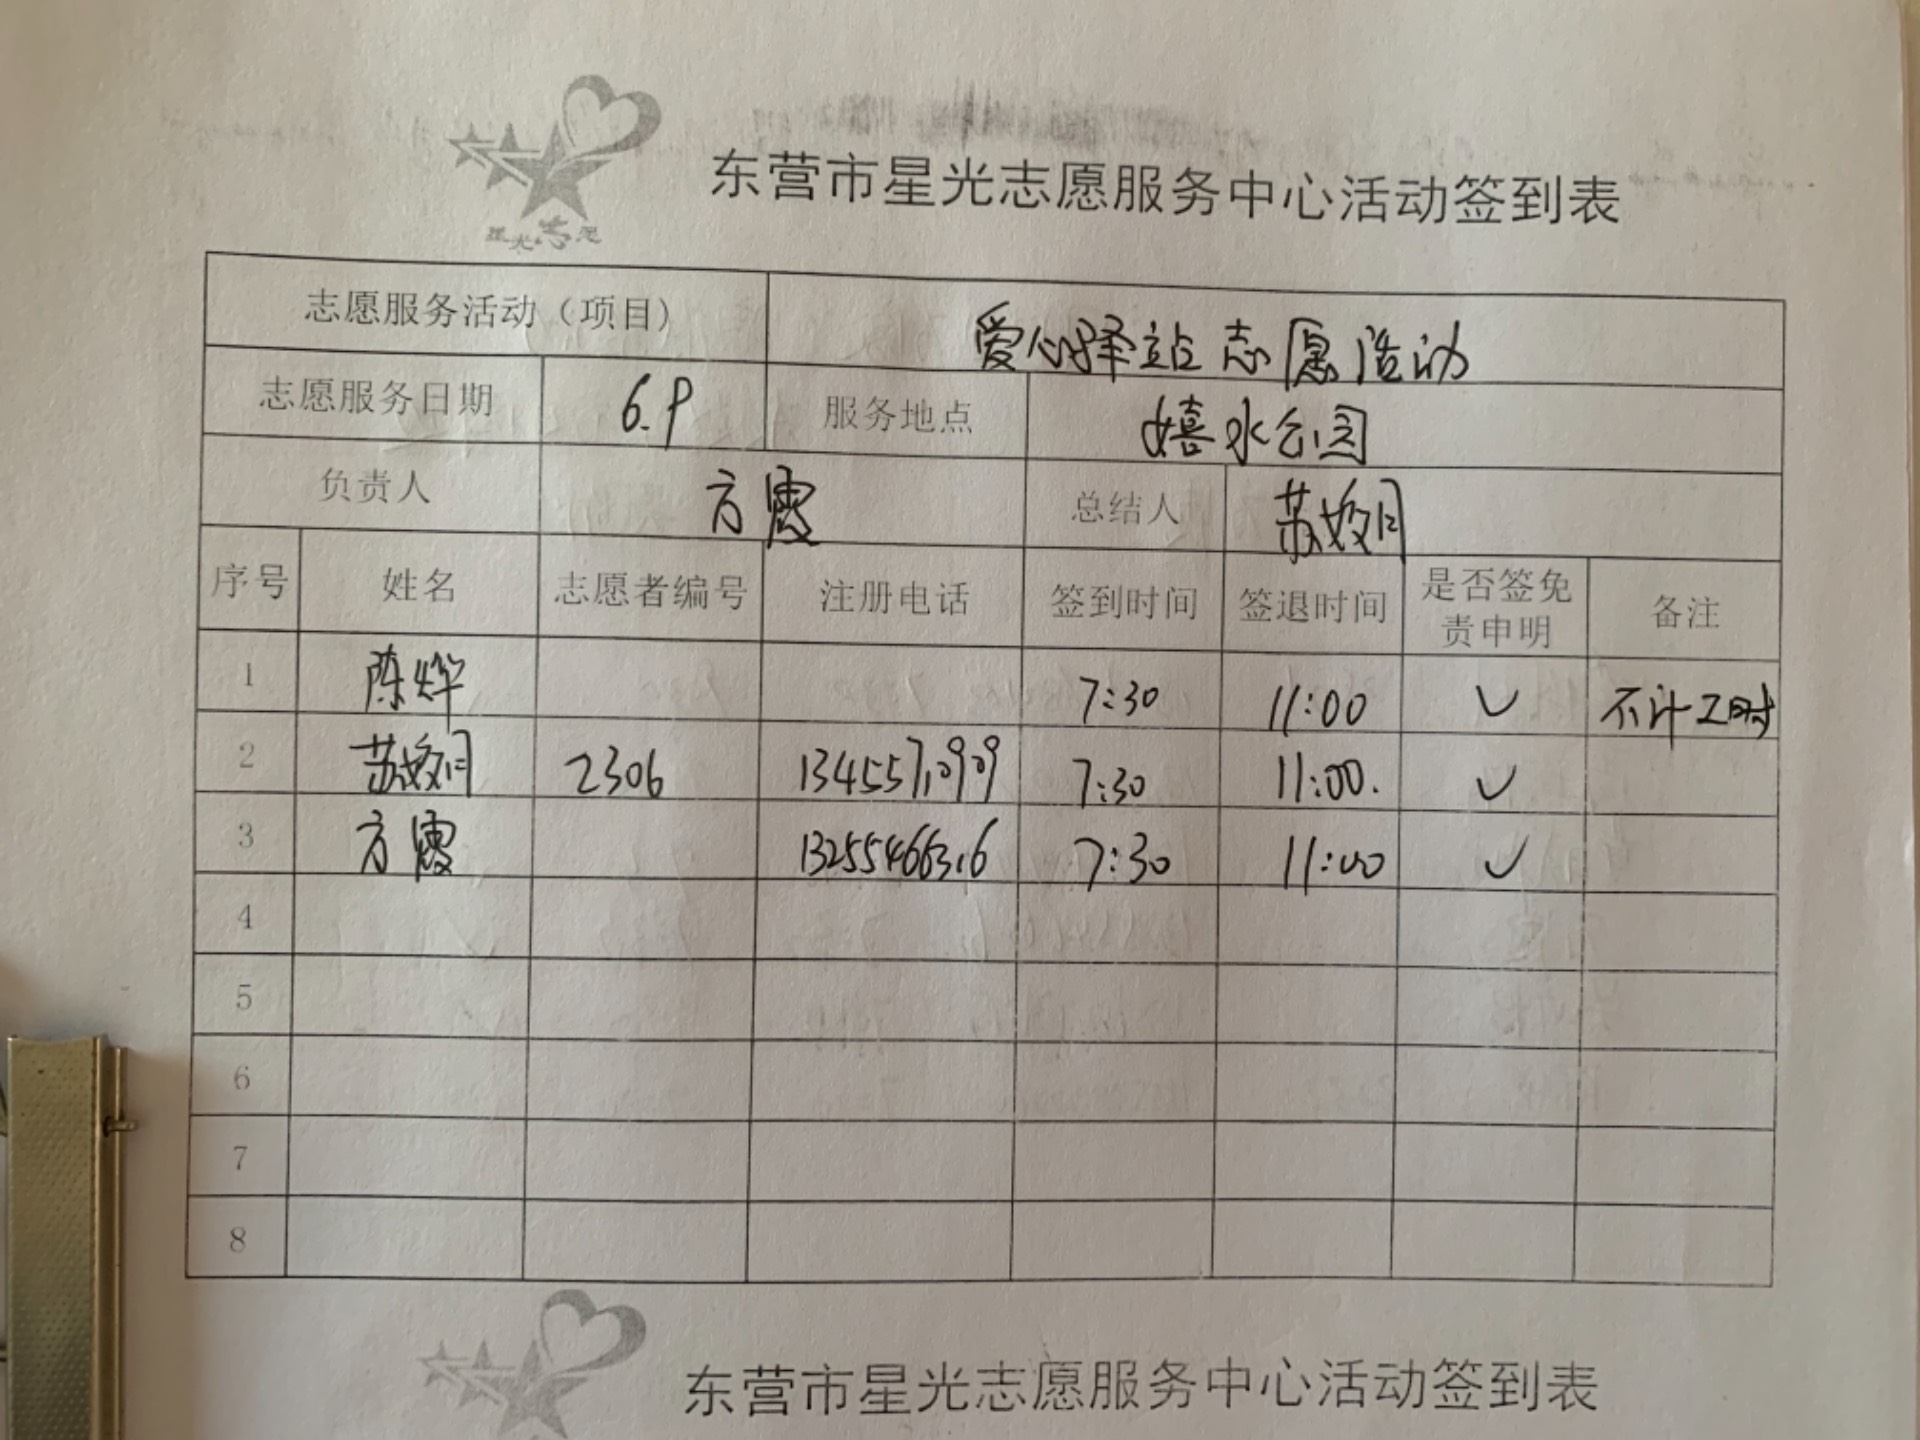 东营市星光志愿服务中心活动签到表
星光志愿
志愿服务活动（项目） 爱心驿站志愿活动
志愿服务日期 6.9 服务地点 嬉水公园
负责人 方霞 总结人 苏姣月
序号 姓名 志愿者编号 注册电话 签到时间 签退时间 是否签免责申明 备注
1 陈烨 7:30 11:00 ✓ 不计工时
2 苏姣月 2306 7:30 11:00. ✓
3 方霞 13255466316 7:30 11:00 ✓
4
5
6
7
8
东营市星光志愿服务中心活动签到表